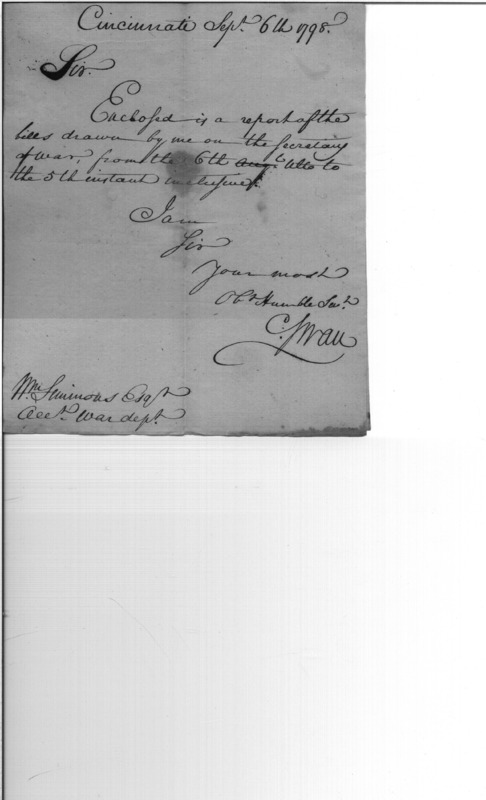 Cincinnati Sept. 6th 1798.
Sir.
Enclosed is a report of the
bills drawn by me on the Secretary
of war, from the 6th Ulto to
the 5th instant inclusive.
I am
Sir
Your most
Obt Humble Servt.
C. Swan
Wm. Simmons Esqr.
Acct. War dept.